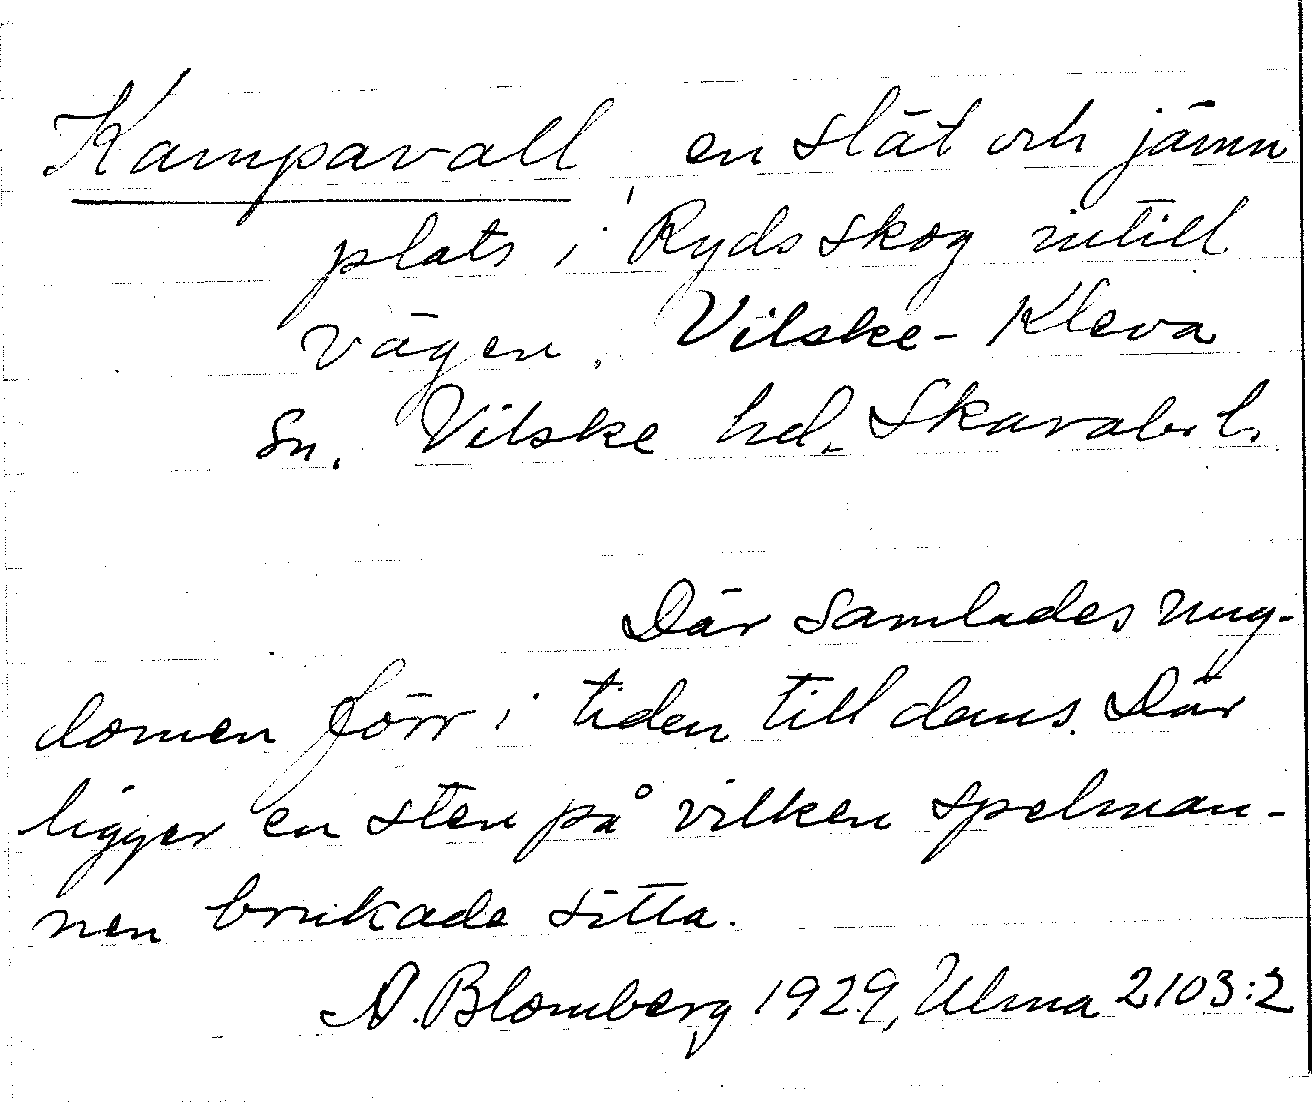 Kampavall, en slät och jämn
plats i Ryds skog intill
vägen. Vilske-Kleva
sn. Vilske hd. Skarab. l.
Där samlades ung-
domen förr i tiden till dans. Där
ligger en sten på vilken spelman-
nen brukade sitta.
A. Blomberg 1929, Ulma 2103:2